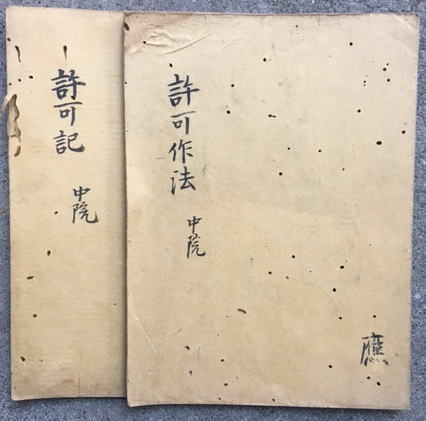 許可作法
中院
應
許可記
中院